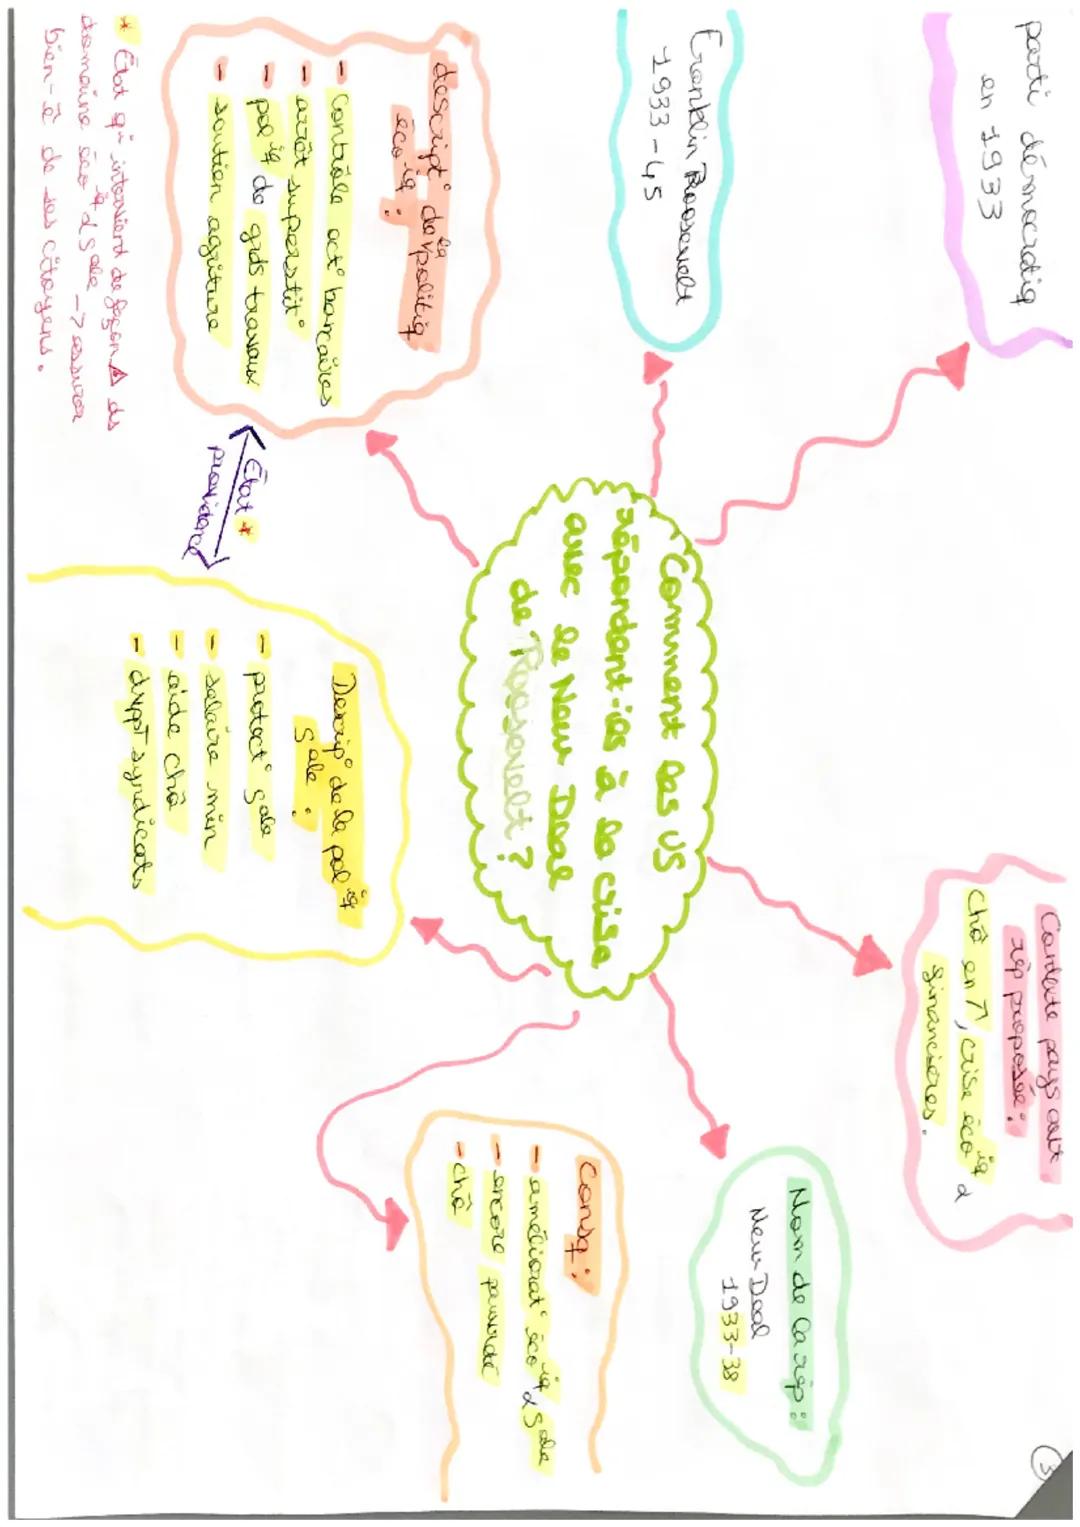 parti démocratiq
en 1933
Franklin Roosevelt
1933-45
descript° de la politiq
éco iq :
- contrôle act° bancaires
- arrêt superstit°
- pol iq de gds travaux
- soutien agriture
* État qi intervient de façon Δ ds
domaine éco iq & sale -> assurer
bien-ê de ses citoyens.
État *
providence
Comment les US
répondent-ils à la crise
avec le New Deal
de Roosevelt ?
Descrip° de la pol iq
Sale :
- protect° Sale
- salaire min
- aide chô
- dvppt syndicats
Contexte pays avt
rép proposée :
Chô en ↗, crise éco iq &
financières.
Nom de la rép :
New Deal
1933-38
Consq :
- améliorat° éco iq & Sale
- encore pauvreté
- chô
3